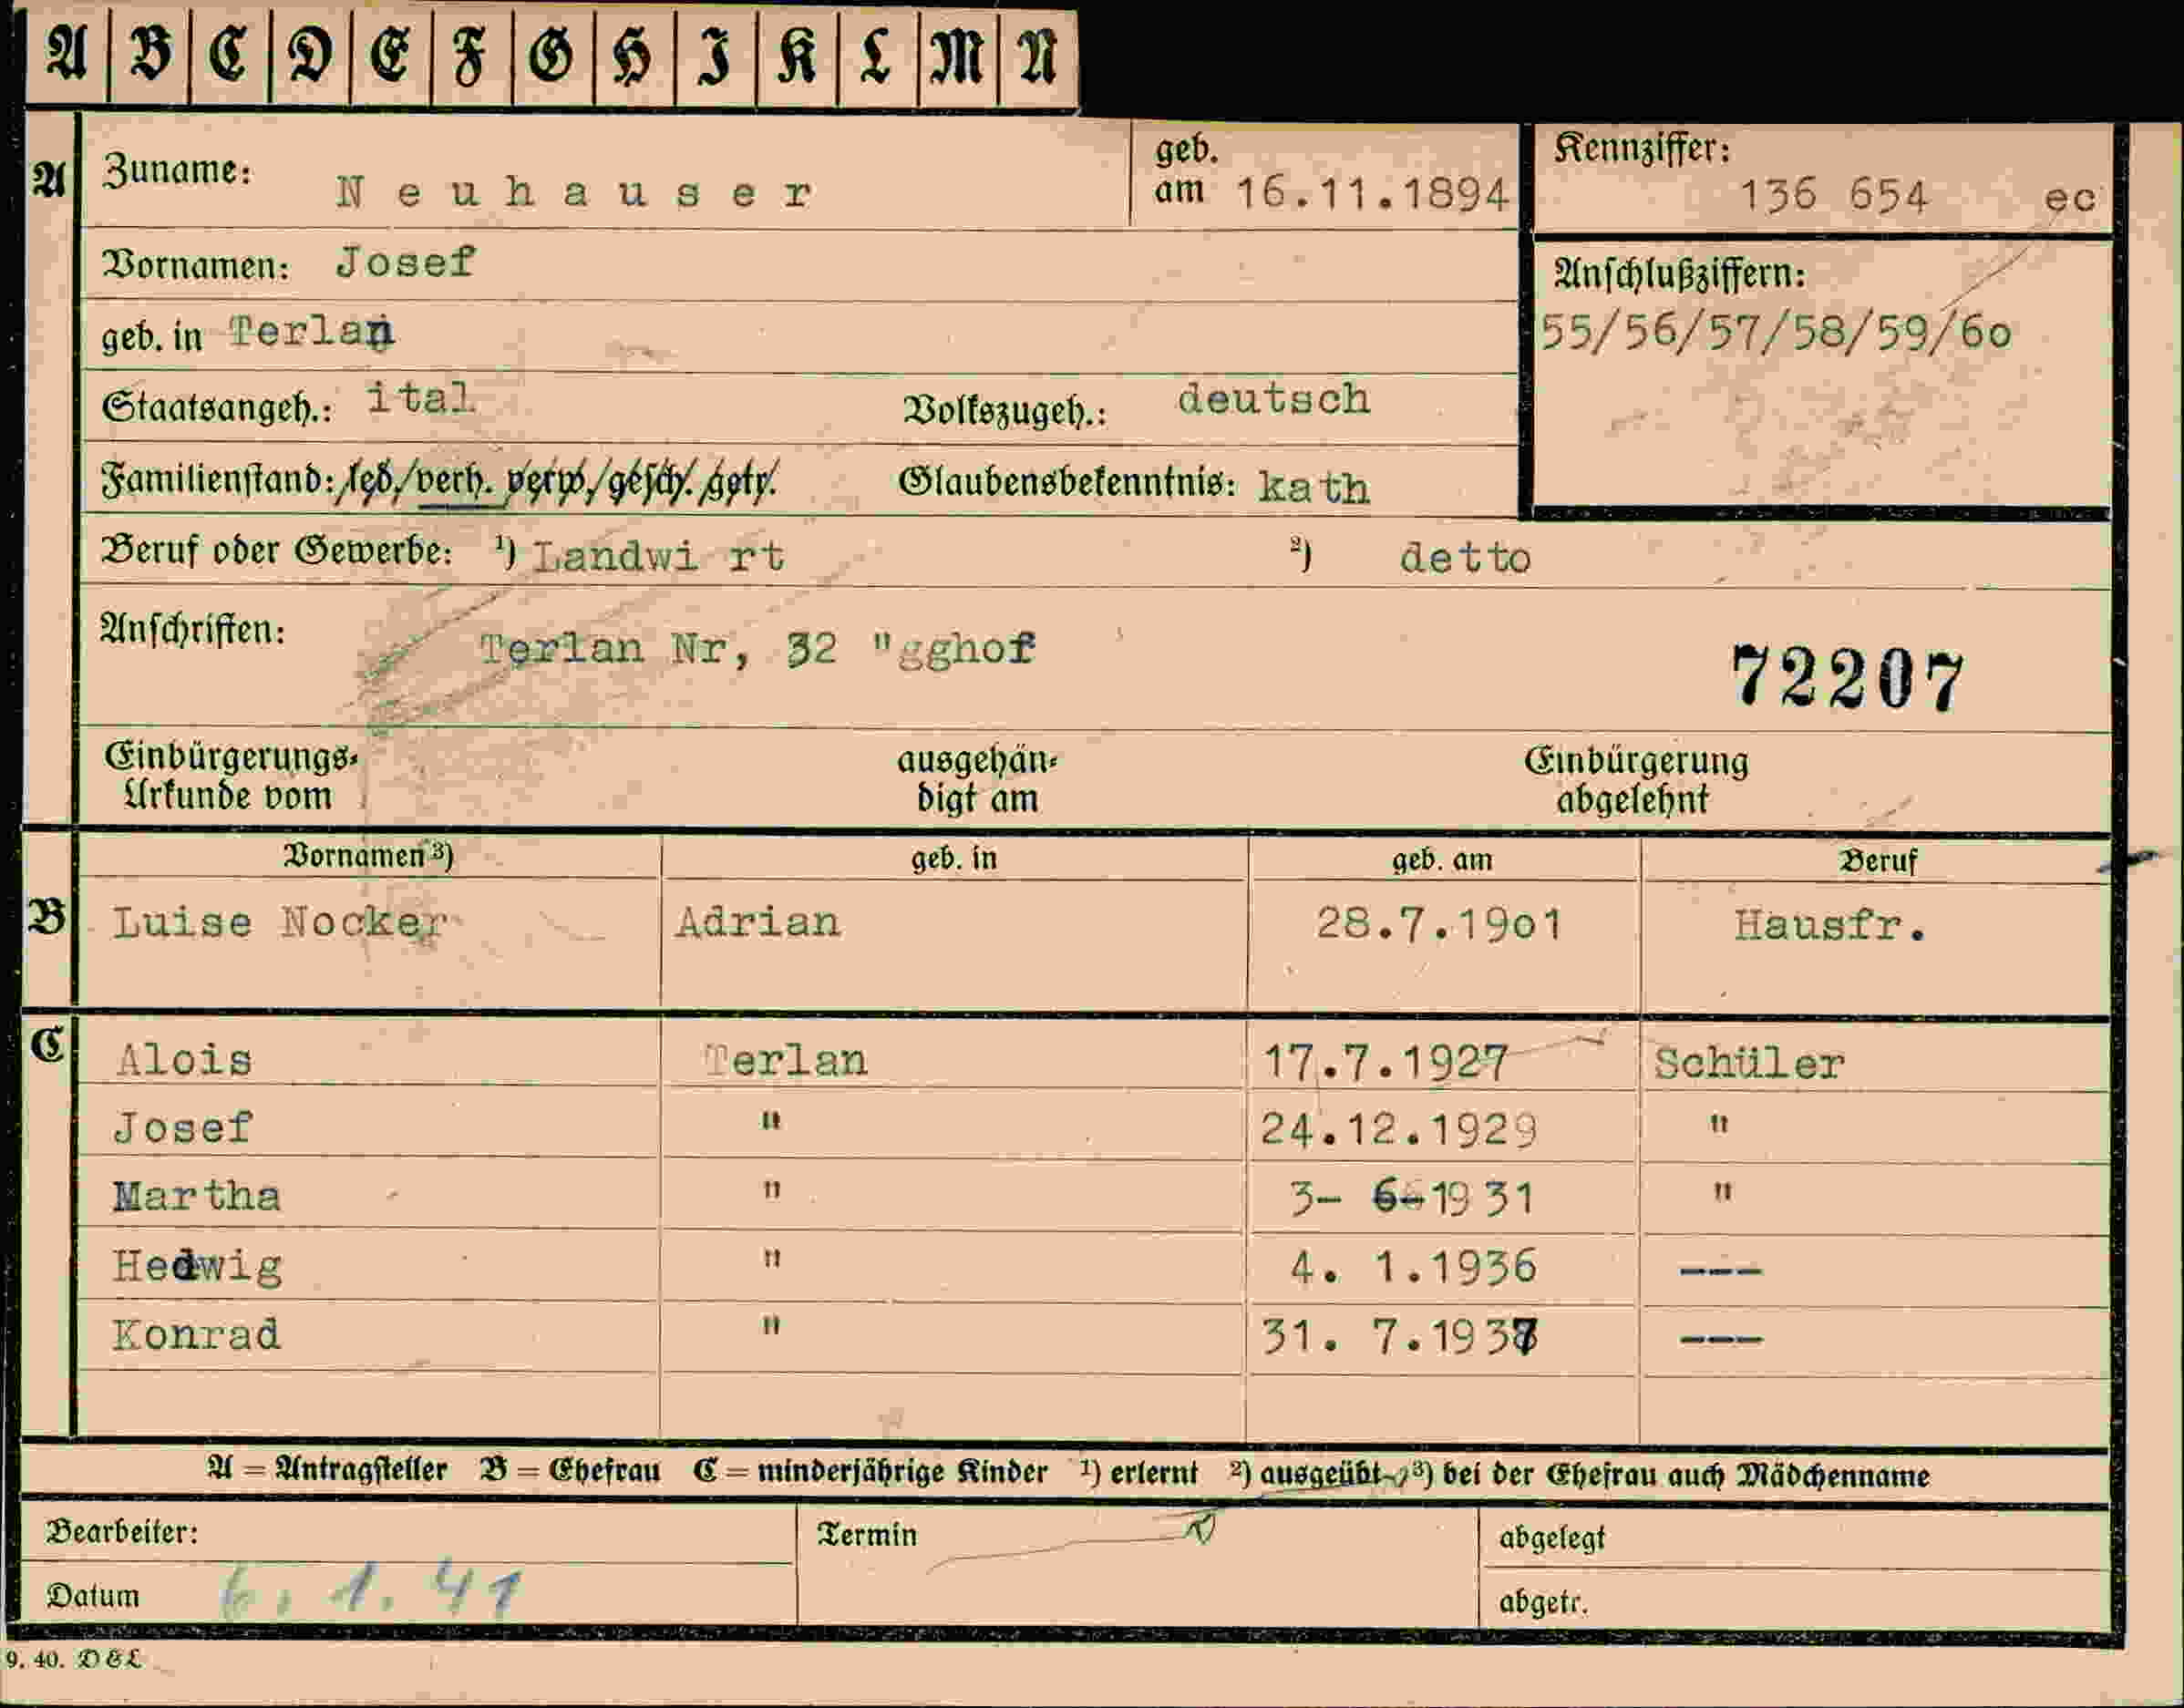 A B C D E F G H I K L M N
A Zuname: Neuhauser geb. am 16.11.1894 Kennziffer: 136 654 ec
Vornamen: Josef Anschlußziffern:
geb. in Terlan 55/56/57/58/59/6o
Staatsangeh.: ital Volkszugeh.: deutsch
Familienstand: led./verh. verw./gesch. getr. Glaubensbekenntnis: kath
Beruf oder Gewerbe: ¹) Landwi rt ²) detto
Anschriften: Terlan Nr, 32 "gghof
72207
Einbürgerungs- Urkunde vom ausgehän- digt am Einbürgerung abgelehnt
Vornamen ³) geb. in geb. am Beruf
B Luise Nocker Adrian 28.7.19o1 Hausfr.
C Alois Terlan 17.7.1927 Schüler
Josef " 24.12.1929 "
Martha " 3- 6-1931 "
Hedwig " 4. 1.1936 ---
Konrad " 31. 7.1937 ---
A = Antragsteller B = Ehefrau C = minderjährige Kinder ¹) erlernt ²) ausgeübt ³) bei der Ehefrau auch Mädchenname
Bearbeiter: Termin abgelegt
Datum 6. 1. 41 abgetr.
9. 40. D & L